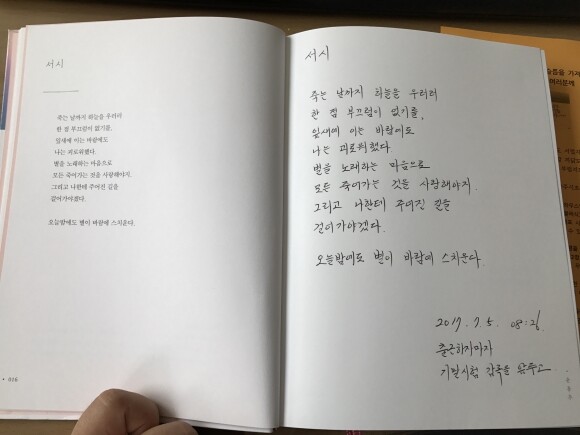 서시
죽는 날까지 하늘을 우러러
한 점 부끄럼이 없기를,
잎새에 이는 바람에도
나는 괴로워했다.
별을 노래하는 마음으로
모든 죽어가는 것을 사랑해야지.
그리고 나한테 주어진 길을
걸어가야겠다.
오늘밤에도 별이 바람에 스치운다.
서시
죽는 날까지 하늘을 우러러
한 점 부끄럼이 없기를,
잎새에 이는 바람에도
나는 괴로워했다.
별을 노래하는 마음으로
모든 죽어가는 것을 사랑해야지.
그리고 나한테 주어진 길을
걸어가야겠다.
오늘밤에도 별이 바람에 스치운다.
2017. 7. 5. 08:26.
출근하자마자
기말시험 감독을 앞두고
가져
여러분께